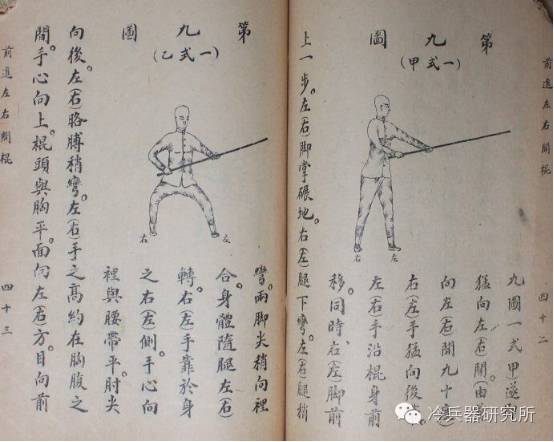 前進左右開棍
四十二
第九圖
(一式甲)
右 左
九圖一式甲遂
猛向左(右)開。(由
向左(右)開九十
右(左)手猛向後。
左(右)手沿棍身前
移。同時、右(左)脚前
上一步。左(右)脚掌碾地。右(左)腿下彎。左(右)腿稍
第九圖
(一式乙)
右 左
彎。兩脚尖稍向裡
合。身體隨腿左(右)
轉。右(左)手靠於身
之右(左)側。手心向
裡與腰帶平。肘尖
向後。左(右)胳膊稍彎。左(右)手之高約在胸腹之
間。手心向上。棍頭與胸平。面向左(右)方。目向前
前進左右開棍
四十三
冷兵器研究所